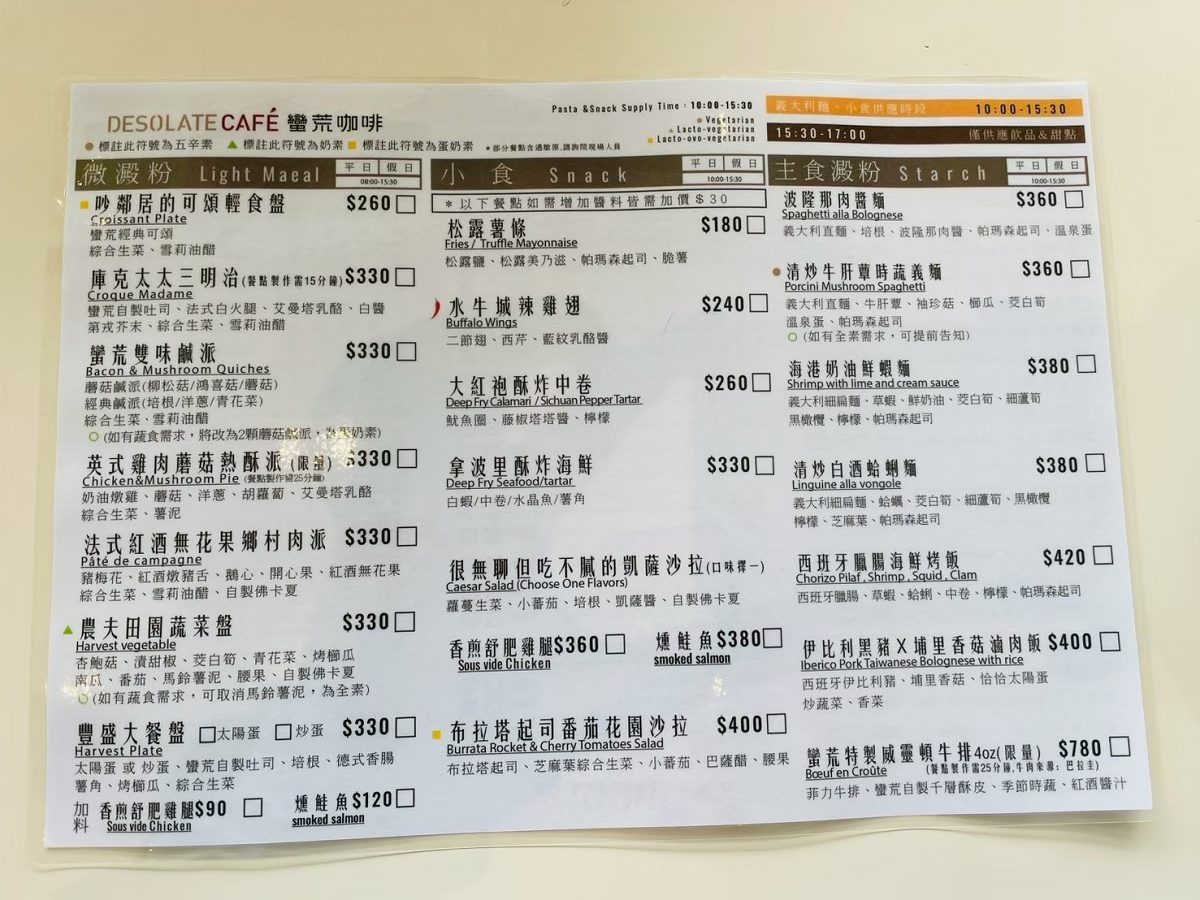 DESOLATE CAFÉ 蠻荒咖啡
● 標註此符號為五辛素 ▲ 標註此符號為奶素 ■ 標註此符號為蛋奶素
＊部分餐點含過敏原,請詢問現場人員
Pasta &Snack Supply Time：10:00-15:30
● Vegetarian
▲ Lacto-vegetarian
■ Lacto-ovo-vegetarian
義大利麵、小食供應時段 10:00-15:30
15:30-17:00 僅供應飲品＆甜點
微澱粉 Light Maeal 平日 假日
08:00-15:30
吵鄰居的可頌輕食盤 $260
Croissant Plate
蠻荒經典可頌
綜合生菜、雪莉油醋
庫克太太三明治(餐點製作需15分鐘) $330
Croque Madame
蠻荒自製吐司、法式白火腿、艾曼塔乳酪、白醬
第戎芥末、綜合生菜、雪莉油醋
蠻荒雙味鹹派 $330
Bacon & Mushroom Quiches
蘑菇鹹派(柳松菇/鴻喜菇/蘑菇)
經典鹹派(培根/洋蔥/青花菜)
綜合生菜、雪莉油醋
(如有蔬食需求，將改為2顆蘑菇鹹派，為蛋奶素)
英式雞肉蘑菇熱酥派(限量) $330
Chicken&Mushroom Pie (餐點製作需25分鐘)
奶油燉雞、蘑菇、洋蔥、胡蘿蔔、艾曼塔乳酪
綜合生菜、薯泥
法式紅酒無花果鄉村肉派 $330
Pâté de campagne
豬梅花、紅酒燉豬舌、鵝心、開心果、紅酒無花果
綜合生菜、雪莉油醋、自製佛卡夏
農夫田園蔬菜盤 $330
Harvest vegetable
杏鮑菇、漬甜椒、茭白筍、青花菜、烤櫛瓜
南瓜、番茄、馬鈴薯泥、腰果、自製佛卡夏
(如有蔬食需求，可取消馬鈴薯泥，為全素)
豐盛大餐盤 太陽蛋 炒蛋 $330
Harvest Plate
太陽蛋 或 炒蛋、蠻荒自製吐司、培根、德式香腸
薯角、烤櫛瓜、綜合生菜
加料 香煎舒肥雞腿$90 燻鮭魚$120
Sous vide Chicken smoked salmon
小食 Snack 平日 假日
10:00-15:30
＊以下餐點如需增加醬料皆需加價＄30
松露薯條 $180
Fries / Truffle Mayonnaise
松露鹽、松露美乃滋、帕瑪森起司、脆薯
水牛城辣雞翅 $240
Buffalo Wings
二節翅、西芹、藍紋乳酪醬
大紅袍酥炸中卷 $260
Deep Fry Calamari / Sichuan Pepper Tartar
魷魚圈、藤椒塔塔醬、檸檬
拿波里酥炸海鮮 $330
Deep Fry Seafood/tartar
白蝦/中卷/水晶魚/薯角
很無聊但吃不膩的凱薩沙拉(口味擇一)
Caesar Salad (Choose One Flavors)
蘿蔓生菜、小蕃茄、培根、凱薩醬、自製佛卡夏
香煎舒肥雞腿$360 燻鮭魚$380
Sous vide Chicken smoked salmon
布拉塔起司番茄花園沙拉 $400
Burrata Rocket & Cherry Tomatoes Salad
布拉塔起司、芝麻葉綜合生菜、小蕃茄、巴薩醋、腰果
主食澱粉 Starch 平日 假日
10:00-15:30
波隆那肉醬麵 $360
Spaghetti alla Bolognese
義大利直麵、培根、波隆那肉醬、帕瑪森起司、溫泉蛋
清炒牛肝蕈時蔬義麵 $360
Porcini Mushroom Spaghetti
義大利直麵、牛肝蕈、袖珍菇、櫛瓜、茭白筍
溫泉蛋、帕瑪森起司
(如有全素需求，可提前告知)
海港奶油鮮蝦麵 $380
Shrimp with lime and cream sauce
義大利細扁麵、草蝦、鮮奶油、茭白筍、細蘆筍
黑橄欖、檸檬、帕瑪森起司
清炒白酒蛤蜊麵 $380
Linguine alla vongole
義大利細扁麵、蛤蠣、茭白筍、細蘆筍、黑橄欖
檸檬、芝麻葉、帕瑪森起司
西班牙臘腸海鮮烤飯 $420
Chorizo Pilaf , Shrimp , Squid , Clam
西班牙臘腸、草蝦、蛤蜊、中卷、檸檬、帕瑪森起司
伊比利黑豬X埔里香菇滷肉飯 $400
Iberico Pork Taiwanese Bolognese with rice
西班牙伊比利豬、埔里香菇、恰恰太陽蛋
炒蔬菜、香菜
蠻荒特製威靈頓牛排4oz(限量) $780
Bœuf en Croûte (餐點製作需25分鐘,牛肉來源：巴拉圭)
菲力牛排、蠻荒自製千層酥皮、季節時蔬、紅酒醬汁